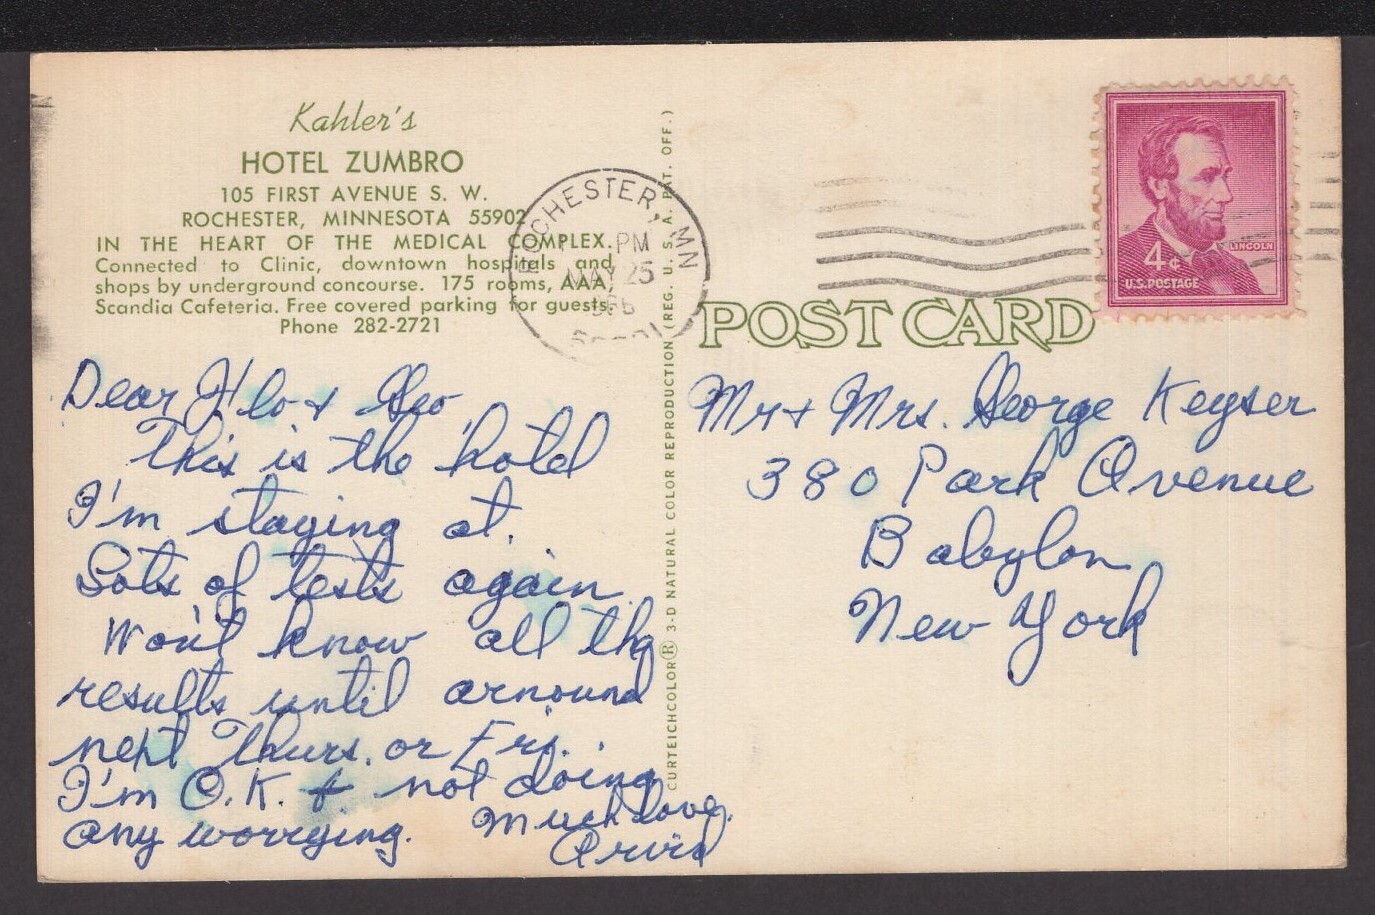 Kahler's
HOTEL ZUMBRO
105 FIRST AVENUE S. W.
ROCHESTER, MINNESOTA 55902
IN THE HEART OF THE MEDICAL COMPLEX.
Connected to Clinic, downtown hospitals and
shops by underground concourse. 175 rooms, AAA,
Scandia Cafeteria. Free covered parking for guests.
Phone 282-2721
Dear Flo & Geo
This is the hotel
I'm staying at.
Lots of tests again
Won't know all the
results until arnound
next Thurs. or Fri.
I'm O.K. & not doing
any worrying. Much love,
Arvid
CURTEICHCOLOR® 3-D NATURAL COLOR REPRODUCTION (REG. U. S. A. PAT. OFF.)
ROCHESTER, MN
PM
MAY 25
LINCOLN
4¢
U.S. POSTAGE
POST CARD
Mr & Mrs. George Keyser
380 Park Avenue
Babylon
New York